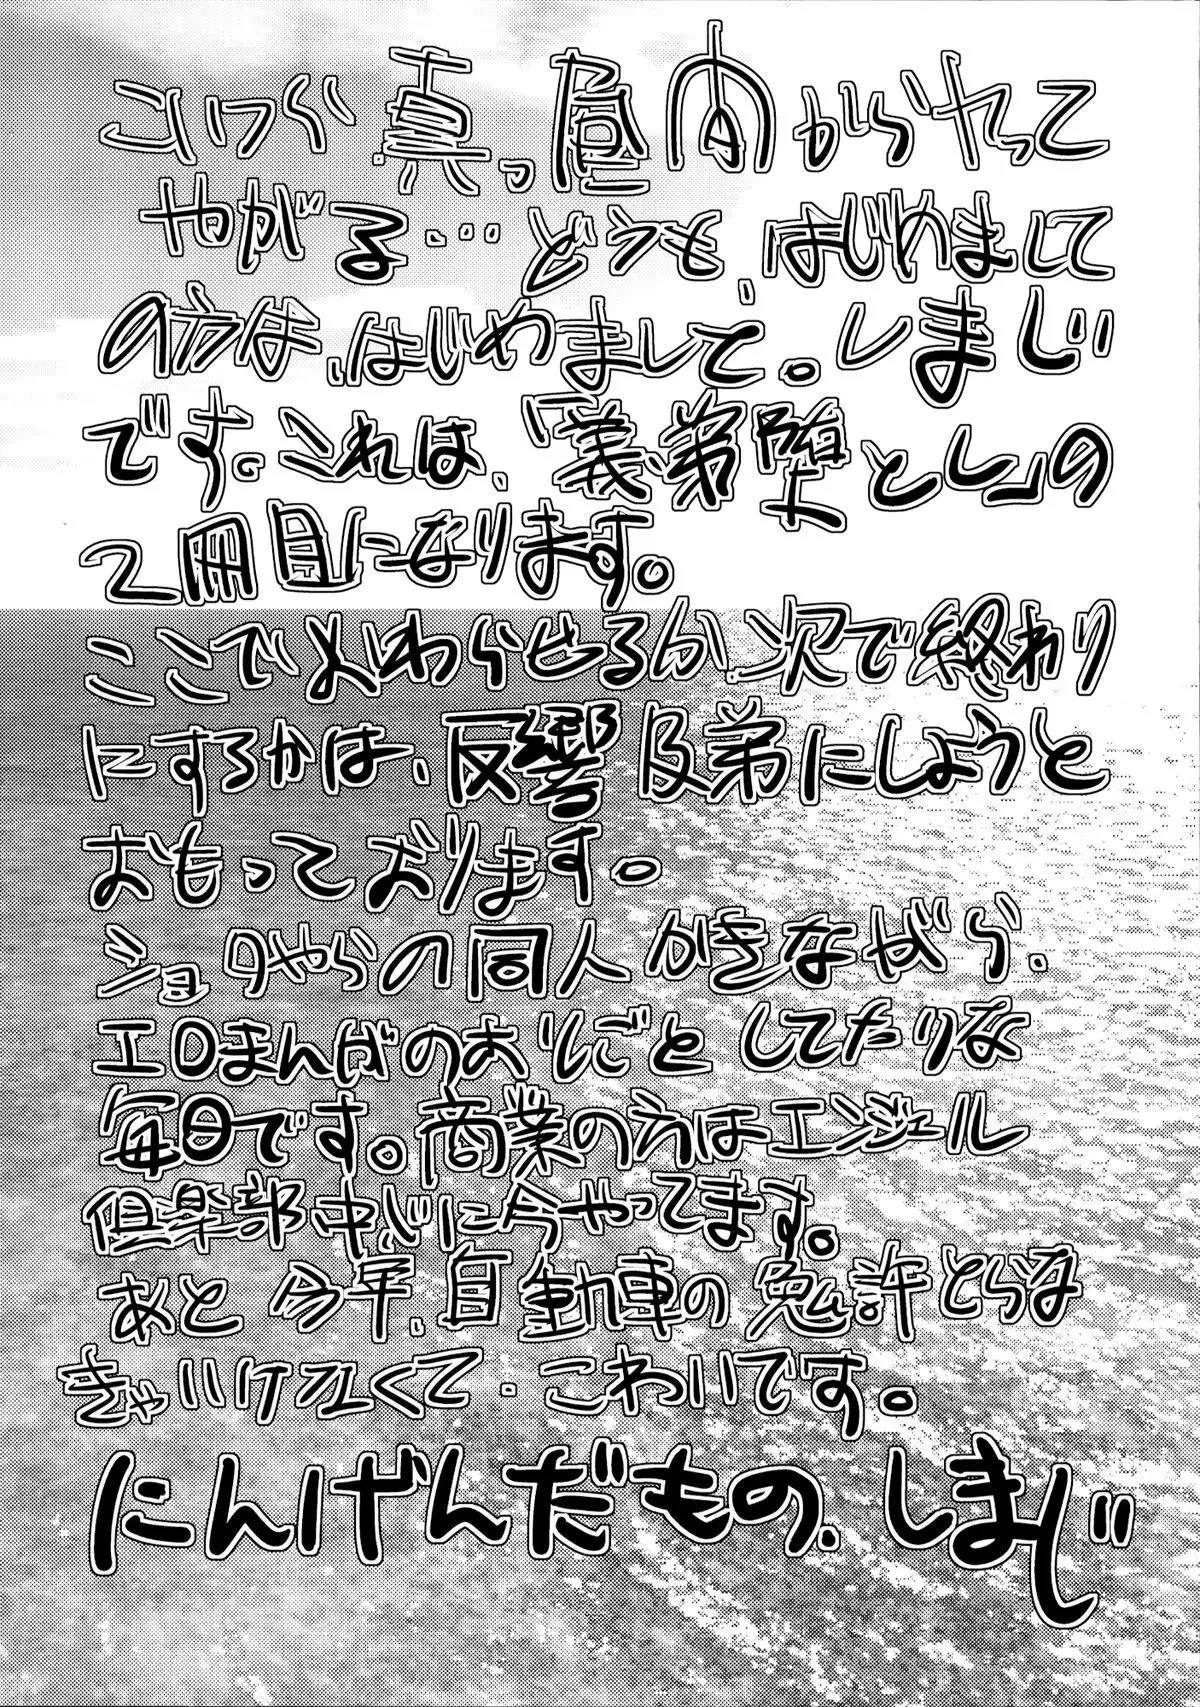 こいつら真っ昼間からヤって
やがる…どうも、はじめまして
の方は、はじめまして。しまじ
です。これは、「義弟堕とし」の
2冊目になります。
ここでよいわからせるか、次で終わり
にするかは、反響及弟にしようと
おもっております。
ショタやらの同人かきながら、
エロまんがのおしごとしてたりな
毎日です。商業の方はエンジェル
倶楽部中心に今やってます。
あと今年、自動車の免許とらな
きゃいけなくて、こわいです。
にんげんだもの、しまじ